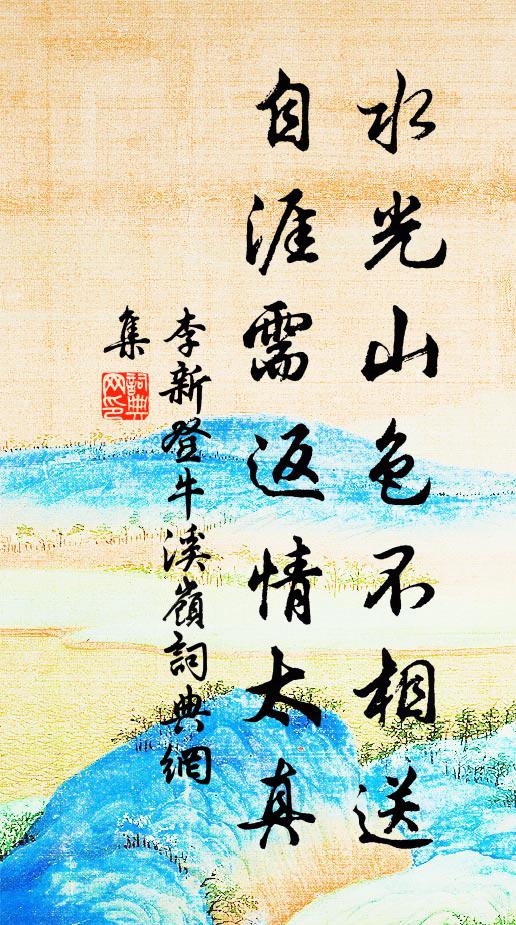 水光山色不相送
自涯需返情太真
李新登牛溪嶺詞典網
集
詞典
网印